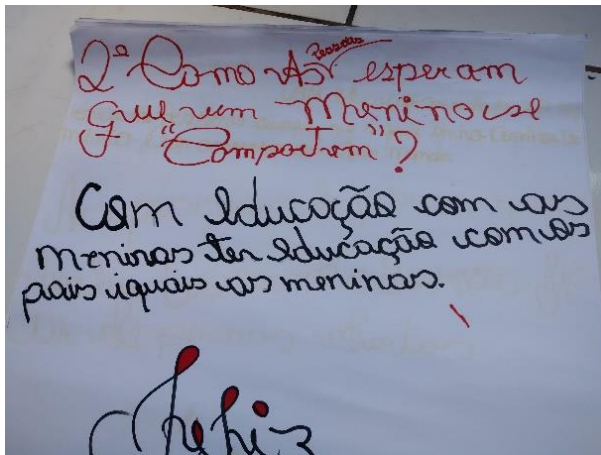 2ª Como As Pessoas esperam
que um Menino se
"Comportem"?
Com educação com as
meninas ter educação com os
pais iguais as meninas.